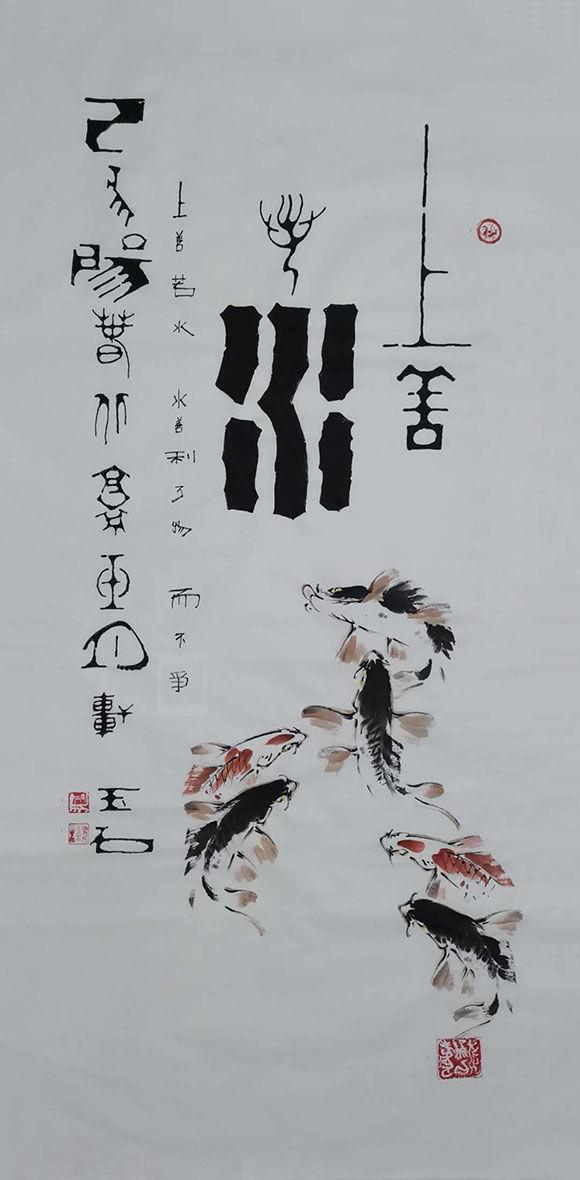 上善
若水
上善若水 水善利万物 而不爭
己亥陽春 軒 玉石